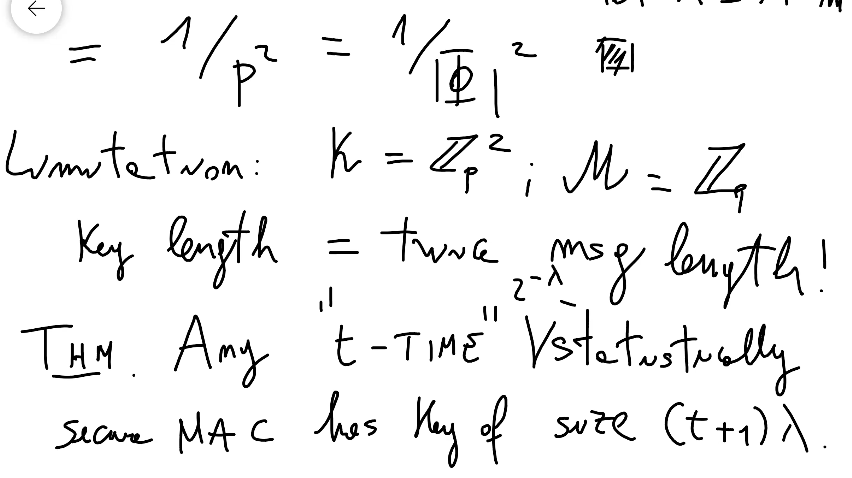 = 1/p² = 1/|Φ|²
Limitation: K = ℤₚ² ; M = ℤₚ
Key length = twice msg length!
THM. Any "t-TIME" 2^-λ-statistically
secure MAC has key of size (t+1)λ.